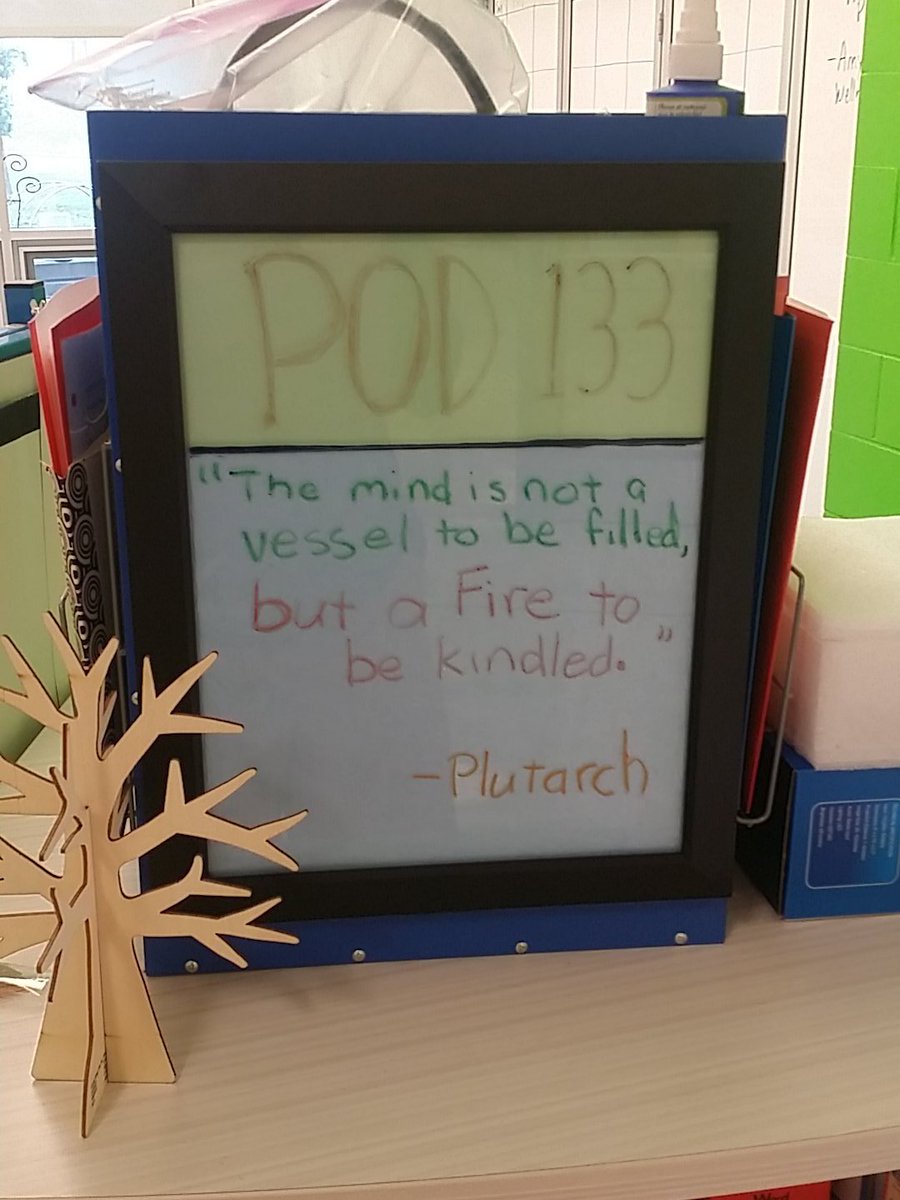 POD 133
"The mind is not a
vessel to be filled,
but a Fire to
be kindled."
-Plutarch